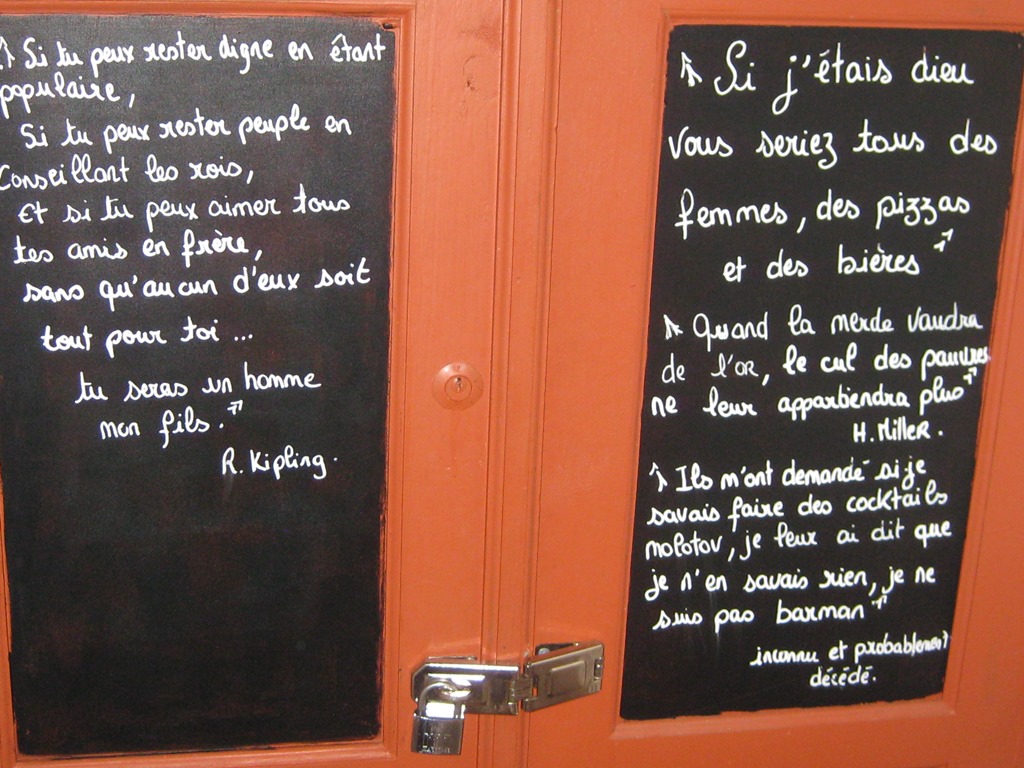 "Si tu peux rester digne en étant
populaire,
Si tu peux rester peuple en
Conseillant les rois,
Et si tu peux aimer tous
tes amis en frère,
sans qu'aucun d'eux soit
tout pour toi ...
tu seras un homme
mon fils."
R. Kipling.
"Si j'étais dieu
vous seriez tous des
femmes, des pizzas
et des bières"
"Quand la merde vaudra
de l'or, le cul des pauvres
ne leur appartiendra plus"
H. Miller.
"Ils m'ont demandé si je
savais faire des cocktails
molotov, je leur ai dit que
je n'en savais rien, je ne
suis pas barman"
inconnu et probablement
décédé.